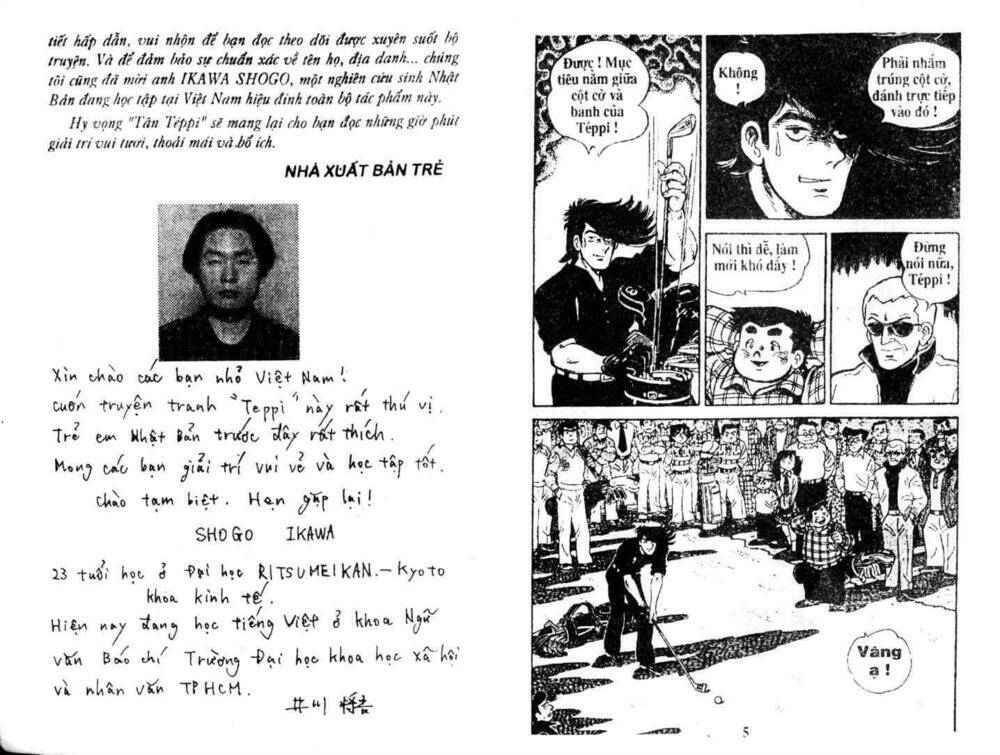 tiết hấp dẫn, vui nhộn để bạn đọc theo dõi được xuyên suốt bộ
truyện. Và để đảm bảo sự chuẩn xác về tên họ, địa danh... chúng
tôi cũng đã mời anh IKAWA SHOGO, một nghiên cứu sinh Nhật
Bản đang học tập tại Việt Nam hiệu đính toàn bộ tác phẩm này.
Hy vọng "Tân Téppi" sẽ mang lại cho bạn đọc những giờ phút
giải trí vui tươi, thoải mái và bổ ích.
NHÀ XUẤT BẢN TRẺ
Xin chào các bạn nhỏ Việt Nam!
cuốn truyện tranh "Teppi" này rất thú vị.
Trẻ em Nhật Bản trước đây rất thích.
Mong các bạn giải trí vui vẻ và học tập tốt.
chào tạm biệt. Hẹn gặp lại!
SHOGO IKAWA
23 tuổi học ở Đại học RITSUMEIKAN.-Kyoto
khoa kinh tế.
Hiện nay đang học tiếng Việt ở khoa Ngữ
văn Báo chí Trường Đại học khoa học xã hội
và nhân văn TPHCM.
井川 将吾
Được ! Mục
tiêu nằm giữa
cột cờ và
banh của
Téppi !
Không
!
Phải nhắm
trúng cột cờ,
đánh trực tiếp
vào đó !
Nói thì dễ, làm
mới khó đấy !
Đừng
nói nữa,
Téppi !
Vâng
ạ !
5